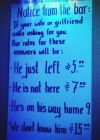 Notice from the bar:
If your wife or girlfriend
calls asking for you.
Our rates for these
answers will be:
- He just left $5.00
- He is not here $7.00
- He's on his way home 9
- We don't know him $15.00